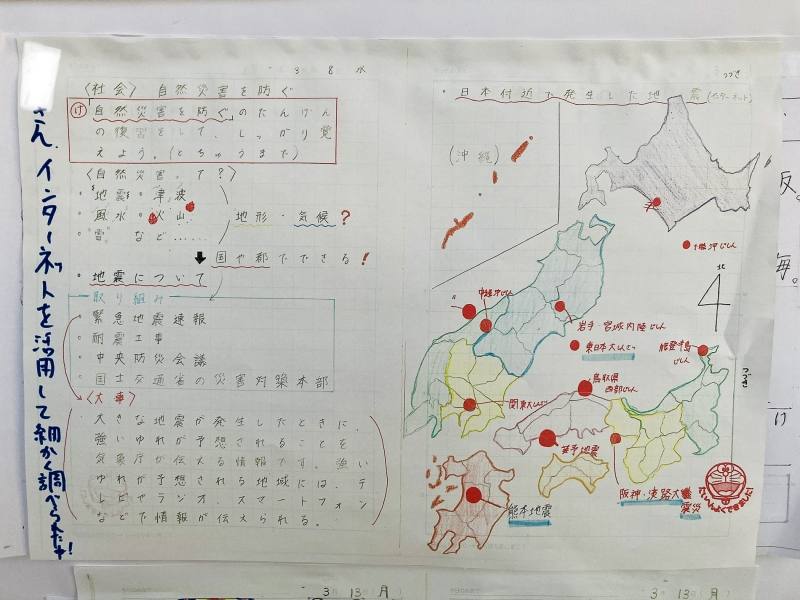 3 8 水
〈社会〉 自然災害を防ぐ
け 自然災害を防ぐのたんけん
の復習をして、しっかり覚
えよう。(とちゅうまで)
〈自然災害って?〉
・地震・津波
・風水・火山
・雪 など……
地形・気候?
国や都でできる!
・地震について
取り組み
・緊急地震速報
・耐震工事
・中央防災会議
・国土交通省の災害対策本部
〈大事〉
大きな地震が発生したときに、
強いゆれが予想されることを
気象庁が伝える情報です。強い
ゆれが予想される地域には、テ
レビやラジオ、スマートフォン
などで情報が伝えられる。
さん、インターネットを活用して細かく調べてたよ!
つづき
・日本付近で発生した地震(インターネット)
(沖縄)
十勝沖じしん
北
中越沖じしん
岩手・宮城内陸じしん
東日本大しんさい
能登半島
じしん
つづき
鳥取県
西部じしん
関東大しんさい
芸予地震
阪神・淡路大
震災
熊本地震
たいへんよくできました!
3 13 月
3 13 月